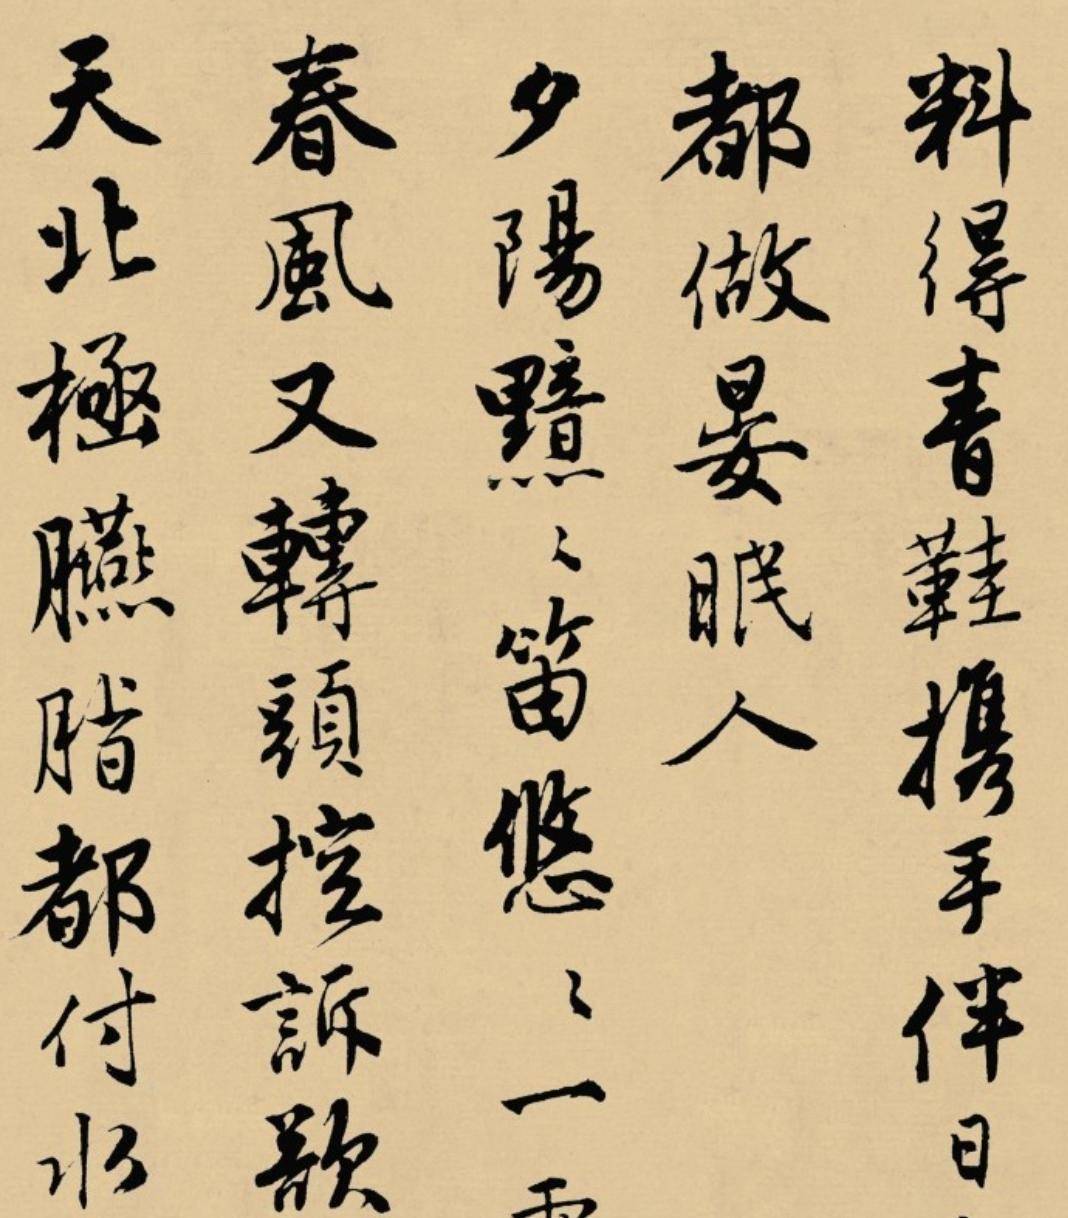 料得青鞋携手伴日
都做晏眠人
夕陽黯〻笛悠〻一
春風又轉頭控訴欲
天北極臙脂都付水